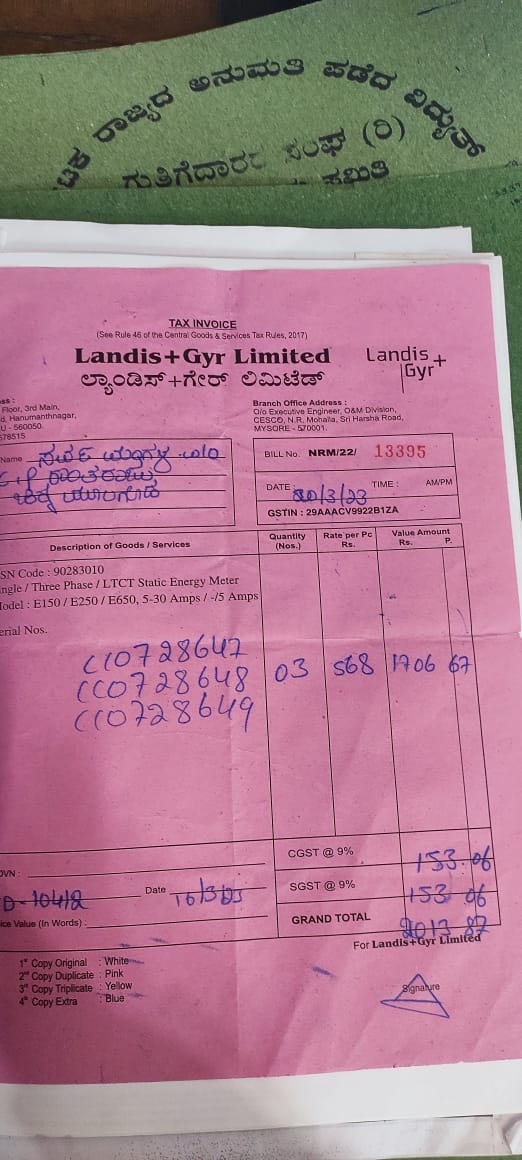 ರಾಜ್ಯದ ಅನುಮತಿ ಪಡೆದ ವಿದ್ಯುತ್
ಗುತ್ತಿಗೆದಾರರ ಸಂಘ (ರಿ)
TAX INVOICE
(See Rule 46 of the Central Goods & Services Tax Rules, 2017)
Landis+Gyr Limited
Landis+Gyr
ಲ್ಯಾಂಡಿಸ್+ಗೇರ್ ಲಿಮಿಟೆಡ್
ess :
Floor, 3rd Main,
d, Hanumanthnagar,
U - 560050.
578515
Branch Office Address :
O/o Executive Engineer, O&M Division,
CESCO, N.R. Mohalla, Sri Harsha Road,
MYSORE - 570001.
Name
BILL No. NRM/22/ 13395
DATE : 20/3/23 TIME : AM/PM
GSTIN : 29AAACV9922B1ZA
Description of Goods / Services
Quantity (Nos.)
Rate per Pc Rs.
Value Amount Rs. P.
SN Code : 90283010
ngle / Three Phase / LTCT Static Energy Meter
Model : E150 / E250 / E650, 5-30 Amps / -/5 Amps
erial Nos.
CC0728647
CC0728648 03 568 1706 67
CC0728649
CGST @ 9% 153.06
OVN :
SGST @ 9% 153 06
D-10412 Date 16/3/23
GRAND TOTAL 2013 87
ice Value (In Words) :
For Landis+Gyr Limited
1st Copy Original : White
2nd Copy Duplicate : Pink
3rd Copy Triplicate : Yellow
4th Copy Extra : Blue
Signature